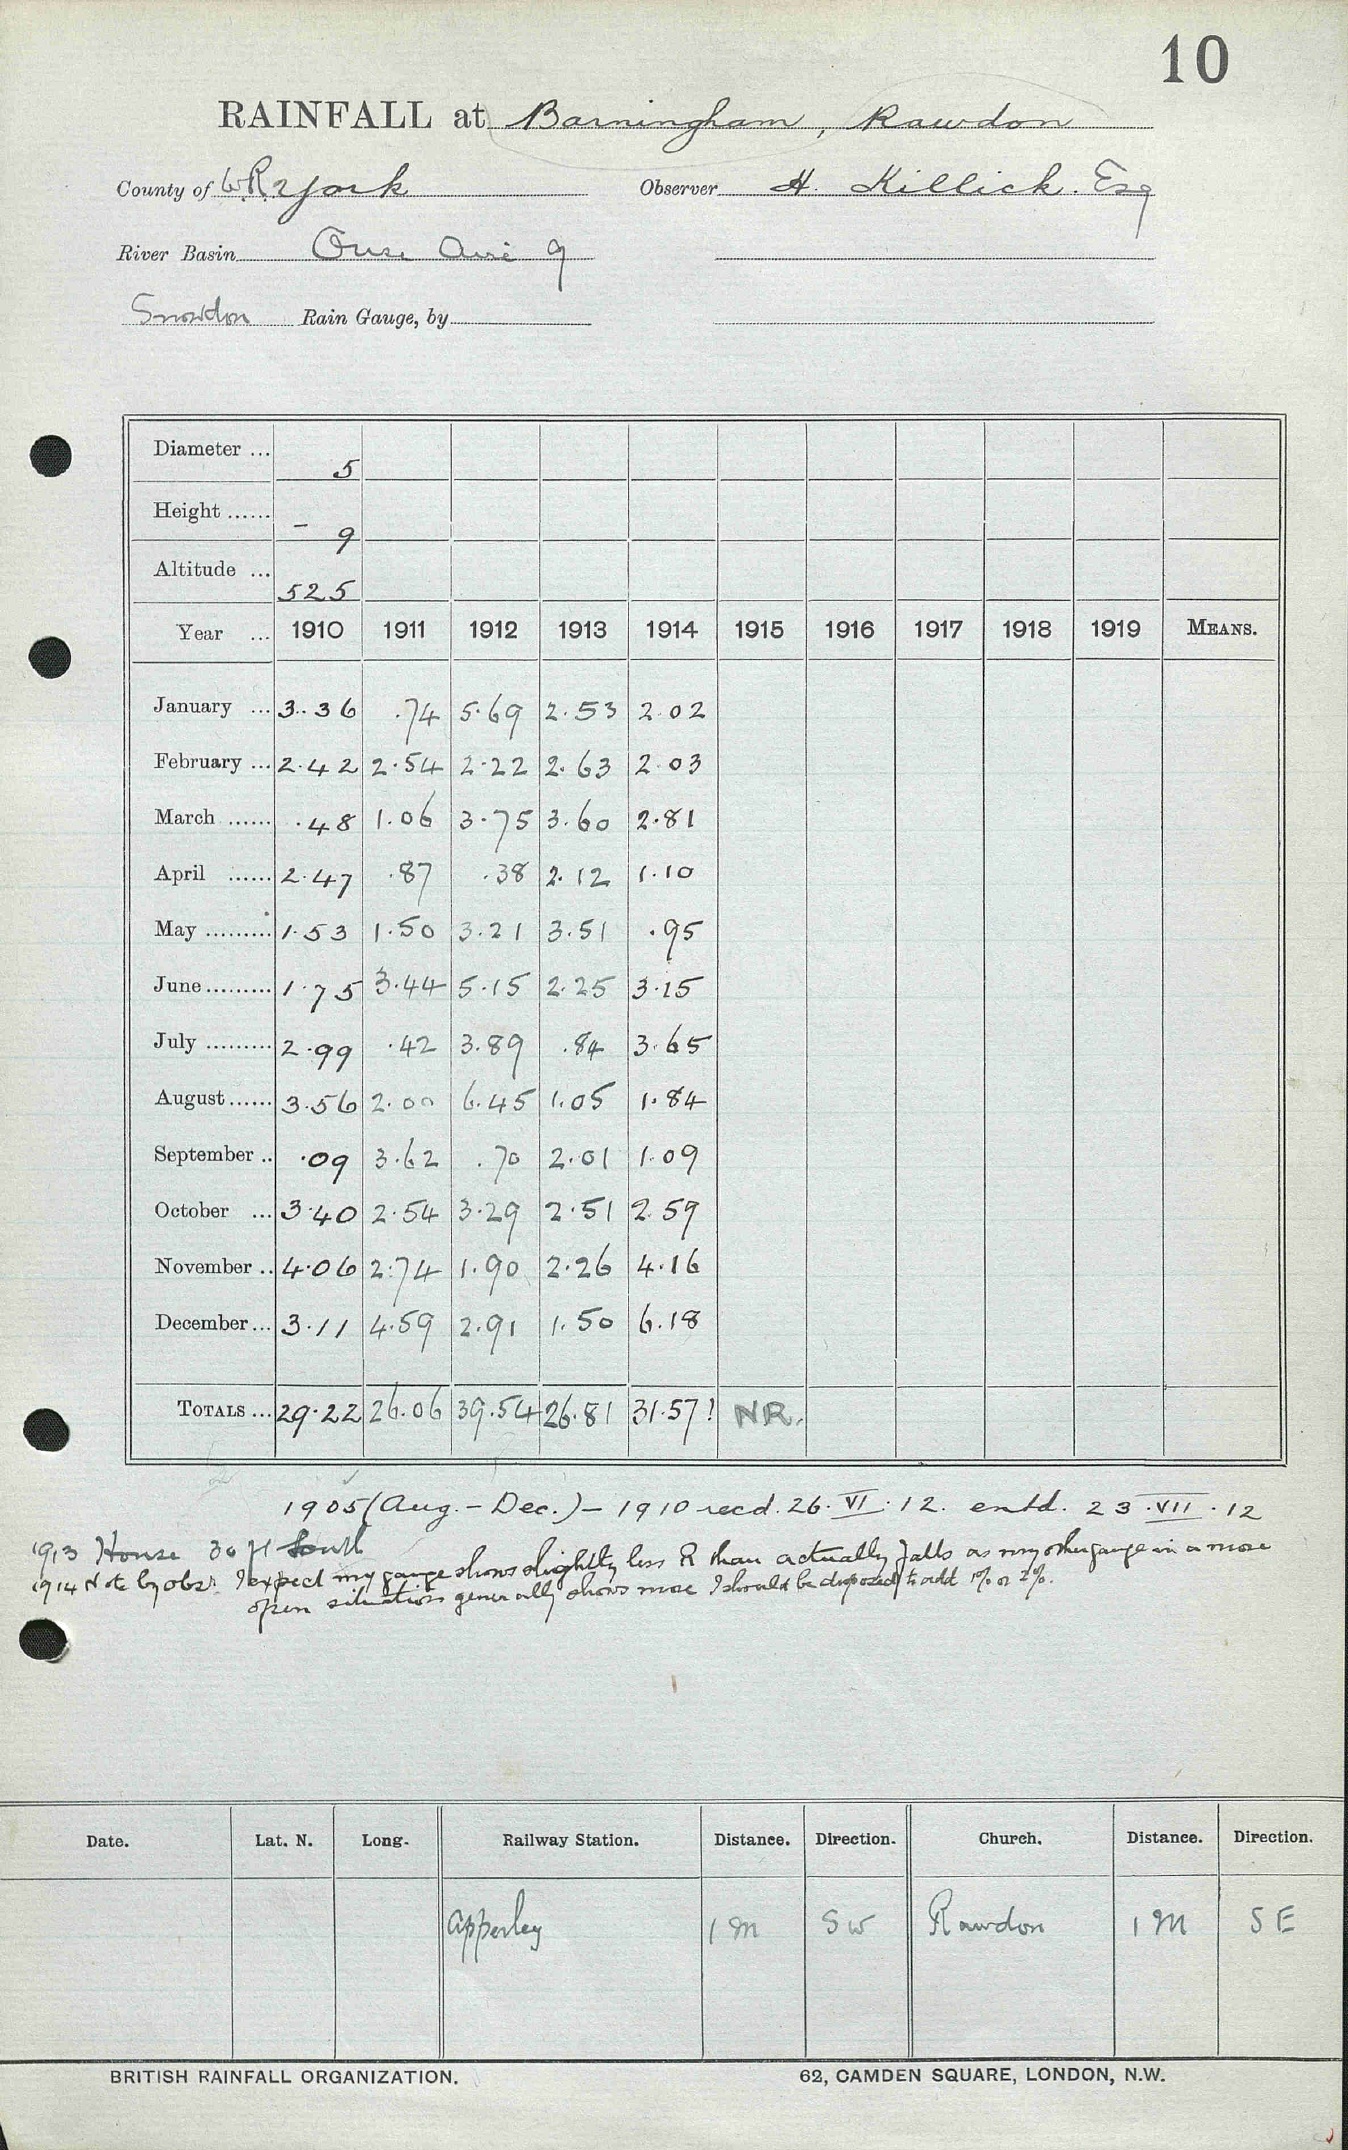 10
RAINFALL at Barningham, Rawdon
County of W.R. York Observer H. Killick. Esq
River Basin Ouse Aire 9
Snowdon Rain Gauge, by
Diameter ... 5
Height ...... - 9
Altitude ... 525
Year ... 1910 1911 1912 1913 1914 1915 1916 1917 1918 1919 MEANS.
January ... 3.36 .74 5.69 2.53 2.02
February ... 2.42 2.54 2.22 2.63 2.03
March ...... .48 1.06 3.75 3.60 2.81
April ...... 2.47 .87 .38 2.12 1.10
May ......... 1.53 1.50 3.21 3.51 .95
June ......... 1.75 3.44 5.15 2.25 3.15
July ......... 2.99 .42 3.89 .84 3.65
August ...... 3.56 2.00 6.45 1.05 1.84
September .. .09 3.62 .70 2.01 1.09
October ... 3.40 2.54 3.29 2.51 2.59
November .. 4.06 2.74 1.90 2.26 4.16
December ... 3.11 4.59 2.91 1.50 6.18
TOTALS ... 29.22 26.06 39.54 26.81 31.57! NR.
1905 (Aug. - Dec.) - 1910 recd. 26.VI.12. entd. 23.VII.12
1913 House 30 ft South
1914 Note by obsr. I expect my gauge shows slightly less R than actually falls as my other gauge in a more
open situation generally shows more I should be disposed to add 1% or 2%.
Date. Lat. N. Long. Railway Station. Distance. Direction. Church. Distance. Direction.
Apperley 1 m SW Rawdon 1 m SE
BRITISH RAINFALL ORGANIZATION. 62, CAMDEN SQUARE, LONDON, N.W.